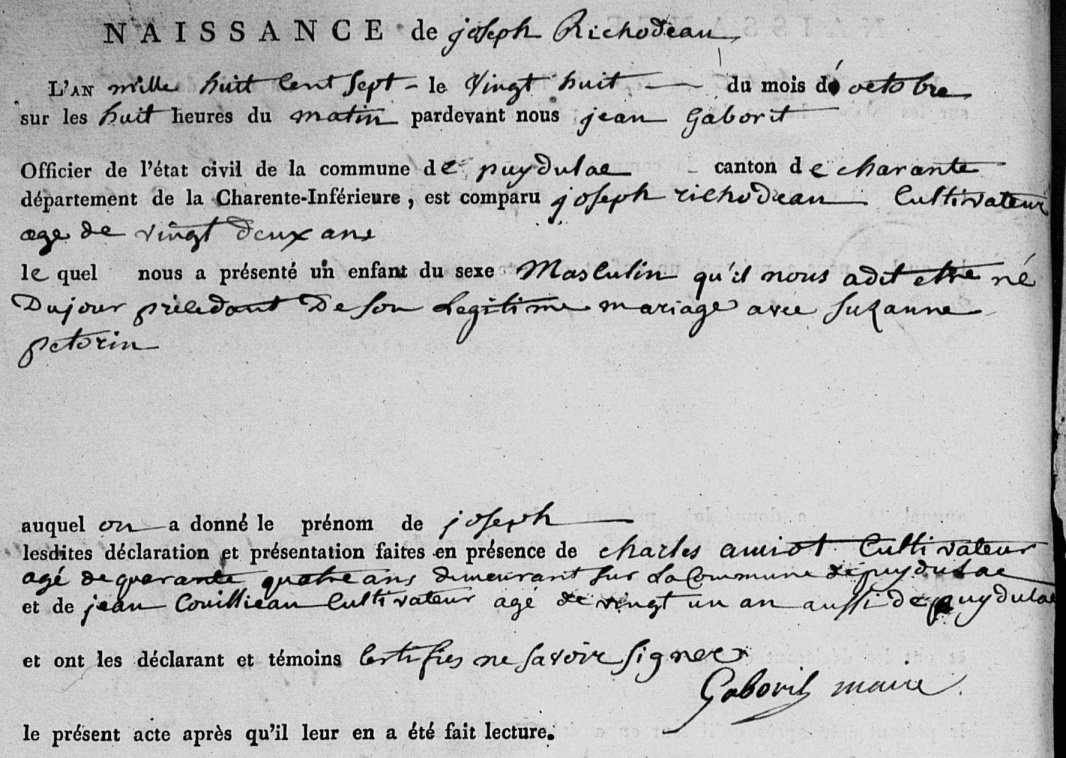 NAISSANCE de joseph Richodeau
L'AN mille huit Cent Sept - le Vingt huit — du mois de octobre
sur les huit heures du matin pardevant nous jean Gaborit
Officier de l'état civil de la commune de puydulac - canton de charante
département de la Charente-Inférieure, est comparu joseph richodeau Cultivateur
age de vingt deux ans
le quel nous a présenté un enfant du sexe Masculin qu'il nous a dit etre né
Dujour précedant De Son Legitime mariage avec Suzanne
petorin
auquel on a donné le prénom de joseph
lesdites déclaration et présentation faites en présence de charles amiot Cultivateur
agé de quarante quatre ans demeurant Sur La Commune de puydulac
et de jean Couillieau Cultivateur agé de vingt un an aussi de puydulac
et ont les déclarant et témoins Certifies ne Savoir Signer
Gaborit maire
le présent acte après qu'il leur en a été fait lecture.